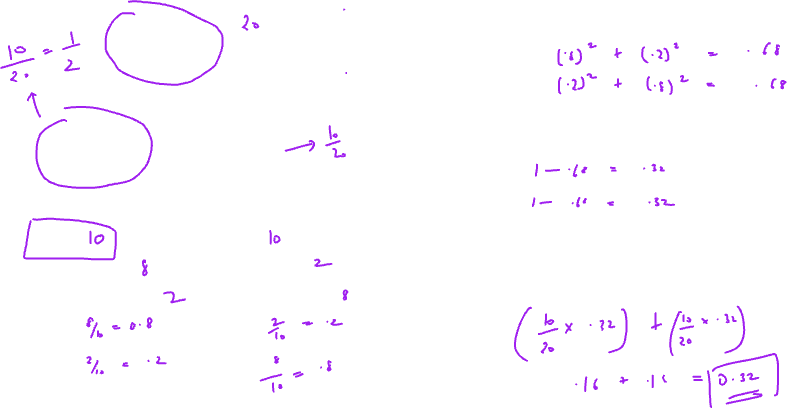 20
10/20 = 1/2
→ 10/20
10
8
2
8/10 = 0.8
2/10 = .2
10
2
8
2/10 = .2
8/10 = .8
(.8)² + (.2)² = .68
(.2)² + (.8)² = .68
1 — .68 = .32
1 — .68 = .32
(10/20 × .32) + (10/20 × .32)
.16 + .16 = 0.32